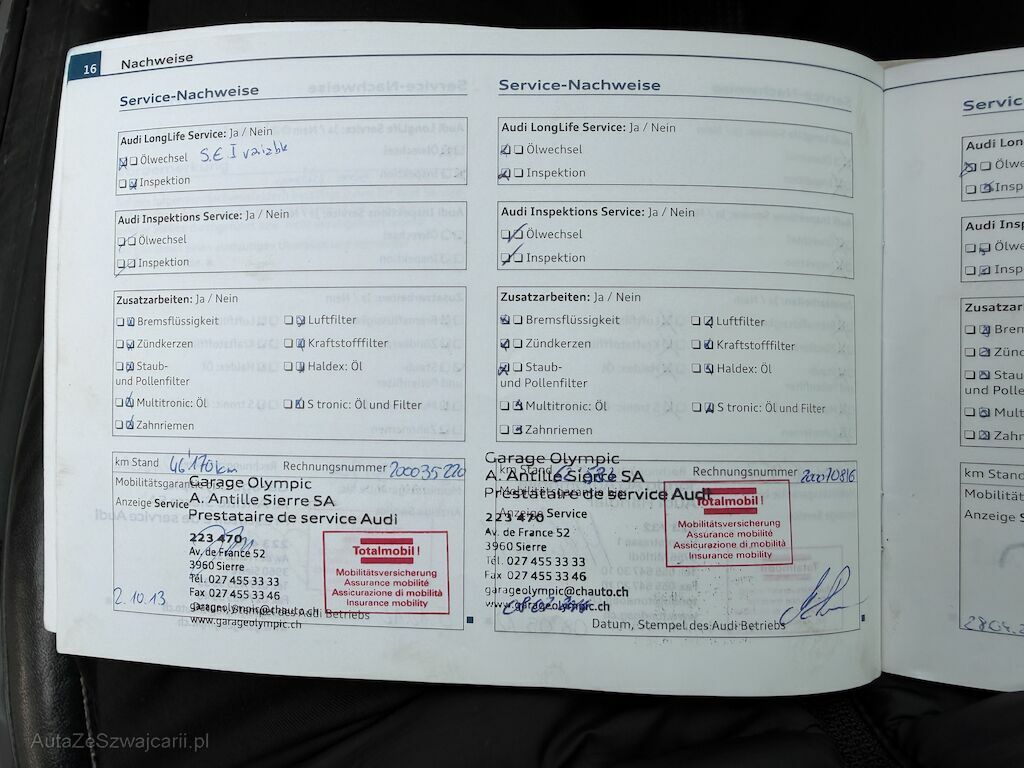 16 Nachweise
Service-Nachweise
Audi LongLife Service: Ja / Nein
Ölwechsel S.E I variable
Inspektion
Audi Inspektions Service: Ja / Nein
Ölwechsel
Inspektion
Zusatzarbeiten: Ja / Nein
Bremsflüssigkeit Luftfilter
Zündkerzen Kraftstofffilter
Staub- Haldex: Öl
und Pollenfilter
Multitronic: Öl S tronic: Öl und Filter
Zahnriemen
km Stand 46'170 km Rechnungsnummer 200035220
Mobilitätsgarantie
Anzeige Service
Garage Olympic
A. Antille Sierre SA
Prestataire de service Audi
223 470
Av. de France 52
3960 Sierre
Tél. 027 455 33 33
Fax 027 455 33 46
garageolympic@chauto.ch
www.garageolympic.ch
Totalmobil!
Mobilitätsversicherung
Assurance mobilité
Assicurazione di mobilità
Insurance mobility
2.10.13
Datum, Stempel des Audi Betriebs
Service-Nachweise
Audi LongLife Service: Ja / Nein
Ölwechsel
Inspektion
Audi Inspektions Service: Ja / Nein
Ölwechsel
Inspektion
Zusatzarbeiten: Ja / Nein
Bremsflüssigkeit Luftfilter
Zündkerzen Kraftstofffilter
Staub- Haldex: Öl
und Pollenfilter
Multitronic: Öl S tronic: Öl und Filter
Zahnriemen
km Stand Rechnungsnummer 200070816
Mobilitätsgarantie bis
Anzeige Service
Garage Olympic
A. Antille Sierre SA
Prestataire de service Audi
223 470
Av. de France 52
3960 Sierre
Tél. 027 455 33 33
Fax 027 455 33 46
garageolympic@chauto.ch
www.garageolympic.ch
Totalmobil!
Mobilitätsversicherung
Assurance mobilité
Assicurazione di mobilità
Insurance mobility
Datum, Stempel des Audi Betriebs
Servic
Audi Lon
Ölwe
Insp
Audi Insp
Ölwe
Inspe
Zusatzar
Brem
Zünd
Stau
und Poll
Mult
Zahn
km Stand
Mobilität
Anzeige S
28.04.2
AutaZeSzwajcarii.pl